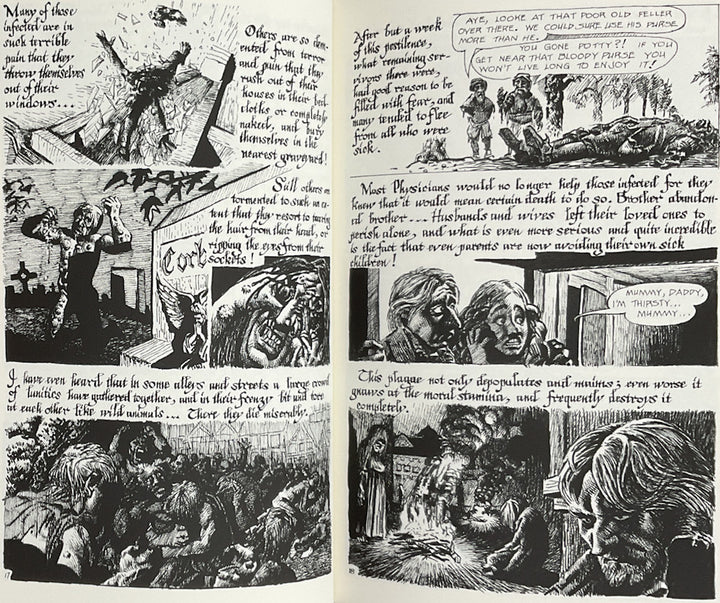 Many of those
infected are in
such terrible
pain that they
throw themselves
out of their
windows...
Others are so dem-
ented from terror
and pain that they
rush out of their
houses in their bed-
cloths or completely
naked, and bury
themselves in the
nearest graveyard!
Still others are
tormented to such an ex-
tent that they resort to tearing
the hair from their head, or
ripping the eyes from their
sockets!
Corb
I have even heard that in some alleys and streets a large crowd
of lunatics have gathered together, and in their frenzy bit and tore
at each other like wild animals... There they die miserably.
17
After but a week
of this pestilence,
what remaining sur-
vivors there were,
had good reason to be
filled with fear, and
many tended to flee
from all who were
sick.
AYE, LOOKE AT THAT POOR OLD FELLER
OVER THERE. WE COULD SURE USE HIS PURSE
MORE THAN HE.
YOU GONE POTTY?! IF YOU
GET NEAR THAT BLOODY PURSE YOU
WON'T LIVE LONG TO ENJOY IT!
Most Physicians would no longer help those infected for they
knew that it would mean certain death to do so. Brother abandon-
ed brother... Husbands and wives left their loved ones to
perish alone, and what is even more serious and quite incredible
is the fact that even parents are now avoiding their own sick
children!
MUMMY, DADDY,
I'M THIRSTY...
MUMMY...
This plague not only depopulates and maims; even worse it
gnaws at the moral stamina, and frequently destroys it
completely.